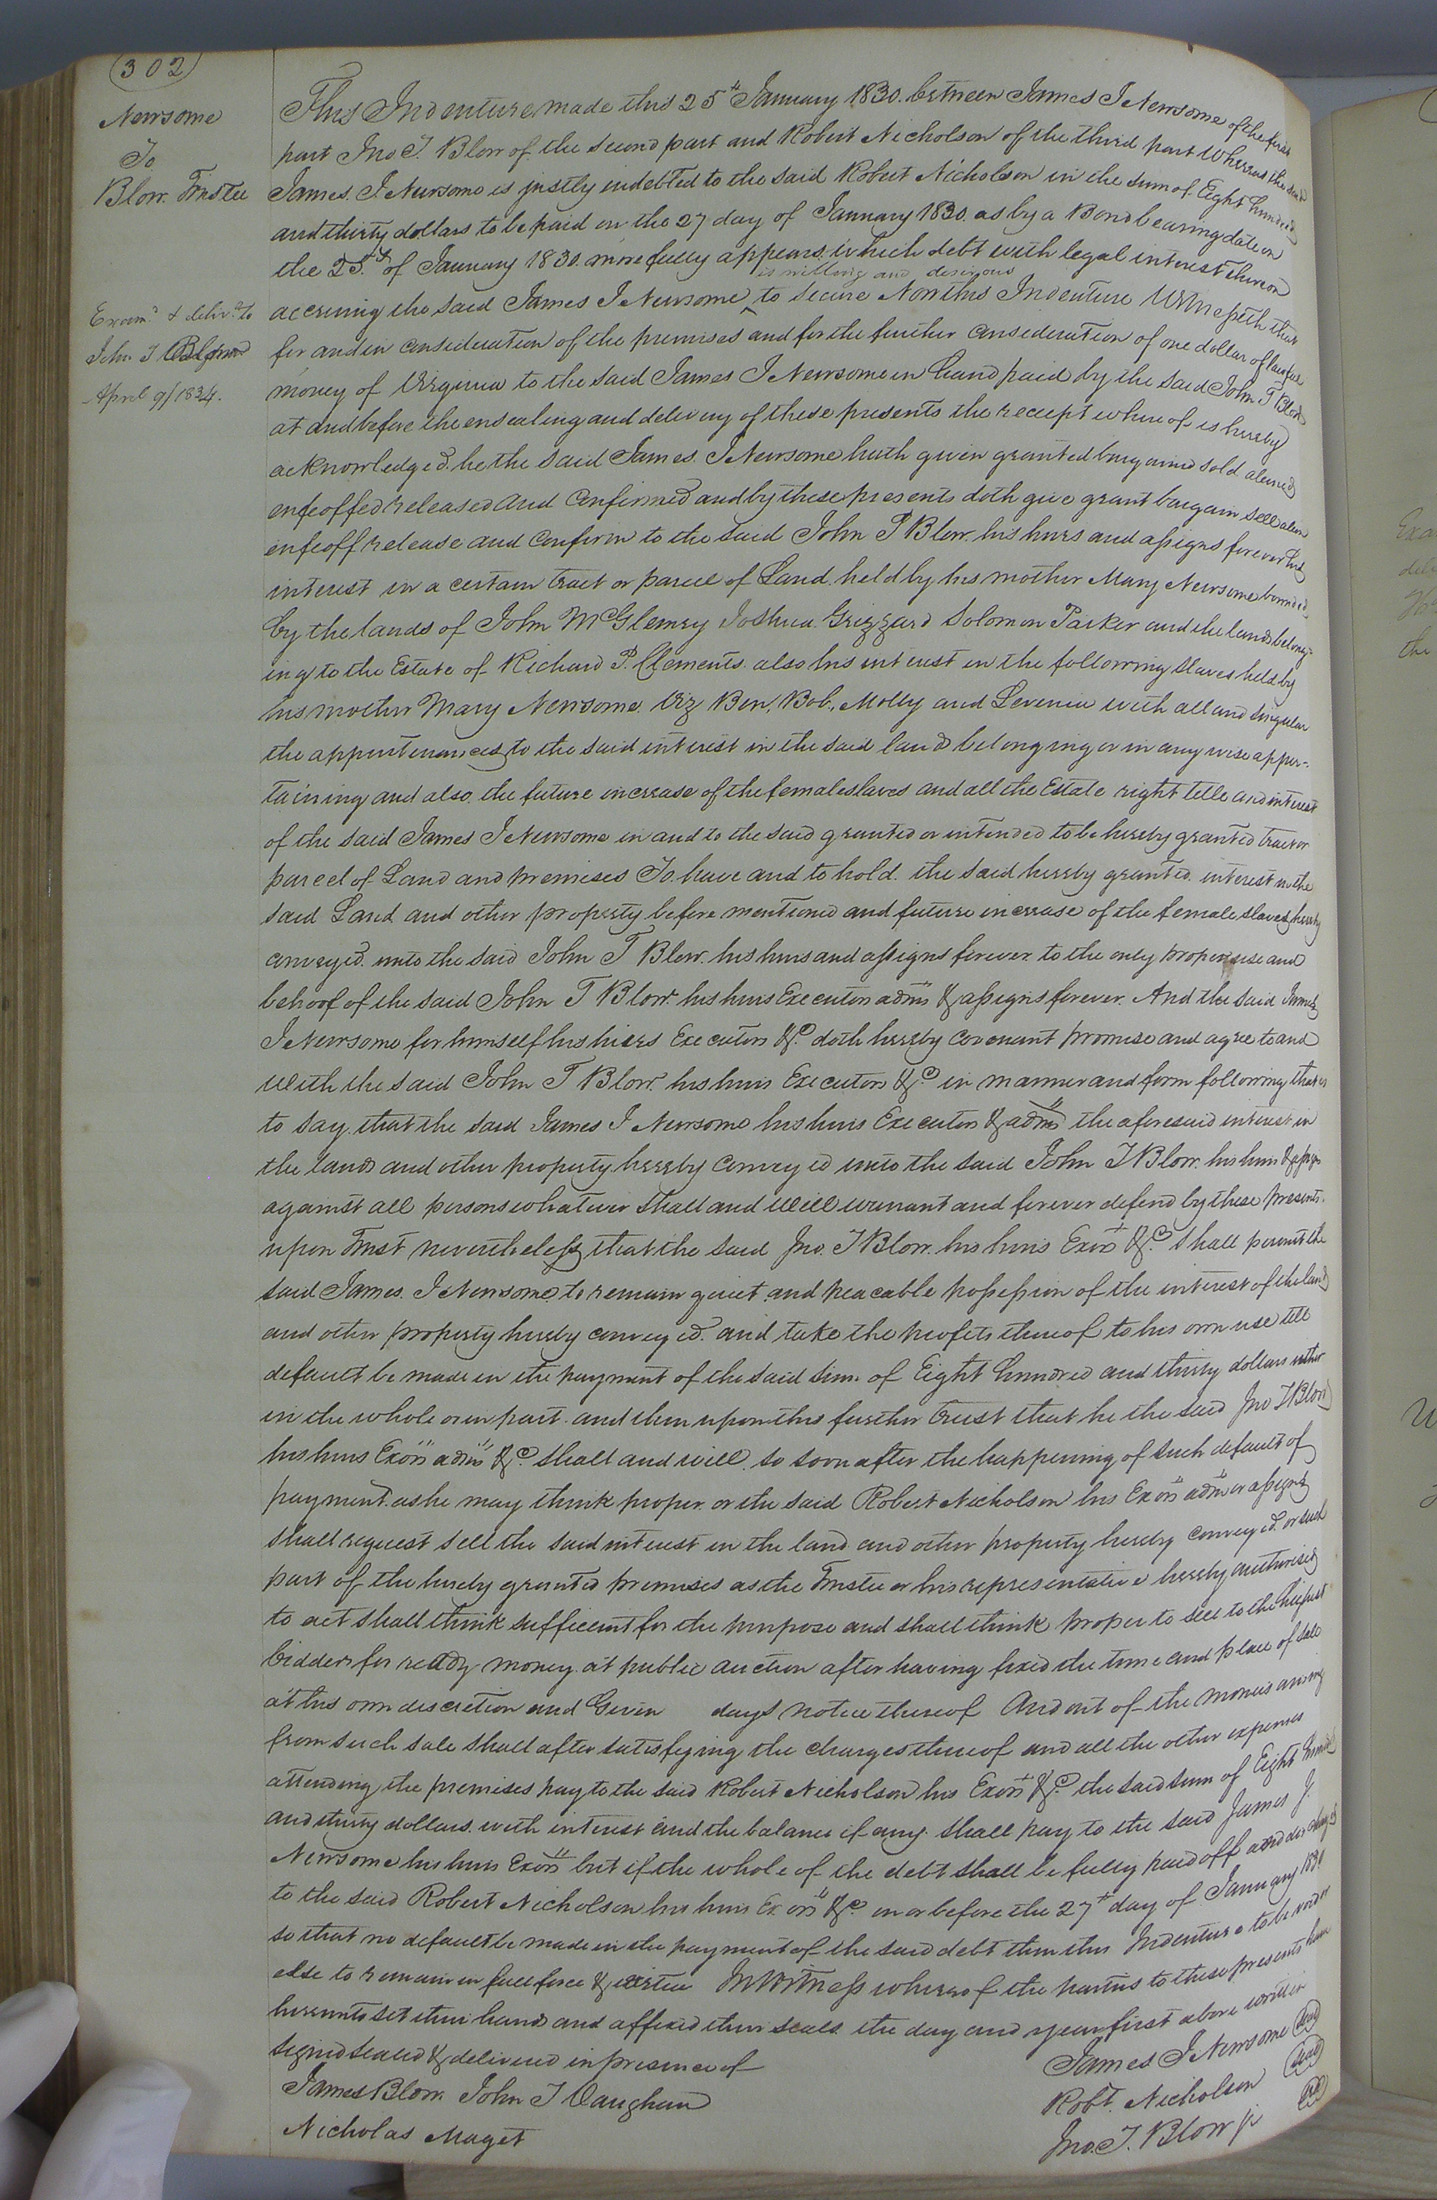 302
Newsome
To
Blow Trustee
Exam.d & deliv.d to
John T Blow
April 9/1834.
This Indenture made this 25th January 1830. between James J Newsome of the first
part Jno T. Blow of the second part and Robert Nicholson of the third part Whereas the said
James. J. Newsome is justly indebted to the said Robert Nicholson in the sum of Eight hundred
and thirty dollars to be paid on the 27 day of January 1830. as by a Bond bearing date on
the 25th of January 1830. more fully appears. which debt with legal interest thereon
is willing and desirous
accruing the said James J Newsome ^ to secure Now this Indenture Witnesseth that
for and in consideration of the premises and for the further consideration of one dollar of lawful
money of Virginia to the said James J Newsome in hand paid by the said John T Blow
at and before the ensealing and delivery of these presents the receipt whereof is hereby
acknowledged. he the said James. J Newsome hath given granted bargained sold aliened
enfeoffed released and Confirmed and by these presents doth give grant bargain sell alien
enfeoff release and Confirm to the said John T Blow. his heirs and assigns forever his
interest in a certain tract or parcel of Land. held by his mother Mary Newsome bounded
by the lands of John McGlemry Joshua Grizzard Solomon Parker and the lands belong-
ing to the Estate of Richard P. Clements. also his interest in the following slaves held by
his mother Mary Newsome. Viz Ben, Bob., Molly and Levenia with all and singular
the appurtenances to the said interest in the said land belonging or in any wise apper-
taining and also. the future increase of the female slaves and all the Estate right title and interest
of the said James J Newsome in and to the said granted or intended to be hereby granted tract or
parcel of Land and premises To have and to hold. the said hereby granted interest in the
said Land and other property before mentioned and future increase of the female slaves hereby
conveyed. unto the said John T Blow. his heirs and assigns forever. to the only proper use and
behoof of the said John T Blow. his heirs Executors adms & assigns forever. And the said James
J Newsome for himself his heirs Executors &c. doth hereby Covenant promise and agree to and
with the said John T Blow. his heirs Executors &c in manner and form following that is
to say. that the said James J Newsome his heirs Executors & adms the aforesaid interest in
the lands and other property hereby Conveyed unto the said John T Blow. his heirs & assigns
against all persons whatever shall and will warrant and forever defend by these presents.
upon Trust nevertheless that the said Jno. T Blow. his heirs Exors &c. shall permit the
said James. J Newsome to remain quiet and peacable possession of the interest of the land
and other property hereby conveyed. and take the profits thereof to his own use till
default be made in the payment of the said sum of Eight hundred and thirty dollars either
in the whole or in part. and then upon this further trust that he the said Jno T Blow
his heirs Exors adms &c. shall and will. so soon after the happening of such default of
payment. as he may think proper. or the said Robert Nicholson his Exors adms or assigns
shall request sell the said interest in the land and other property hereby conveyed. or such
part of the hereby granted premises as the Trustee or his representative hereby authorised
to act shall think sufficient for the purpose and shall think proper to sell to the highest
bidder for ready money at public auction after having fixed the time and place of sale
at his own discretion and Given days notice thereof And out of the monies arising
from such sale shall after satisfying the charges thereof and all the other expenses
attending the premises pay to the said Robert Nicholson his Exors &c. the said sum of Eight hundred
and thirty dollars. with interest and the balance if any. shall pay to the said James J.
Newsome his heirs Exors but if the whole of the debt shall be fully paid off and discharged
to the said Robert Nicholson his heirs Exors &c. on or before the 27th day of January 1830
so that no default be made in the payment of the said debt then this Indenture to be void or
else to remain in full force & virtue In Witness whereof the parties to these presents have
hereunto set their hands and affixed their seals the day and year first above written
signed sealed & delivered in presence of
James Blow. John T Vaughan
Nicholas Maget
James J Newsome seal
Robt. Nicholson seal
Jno. T. Blow jr seal